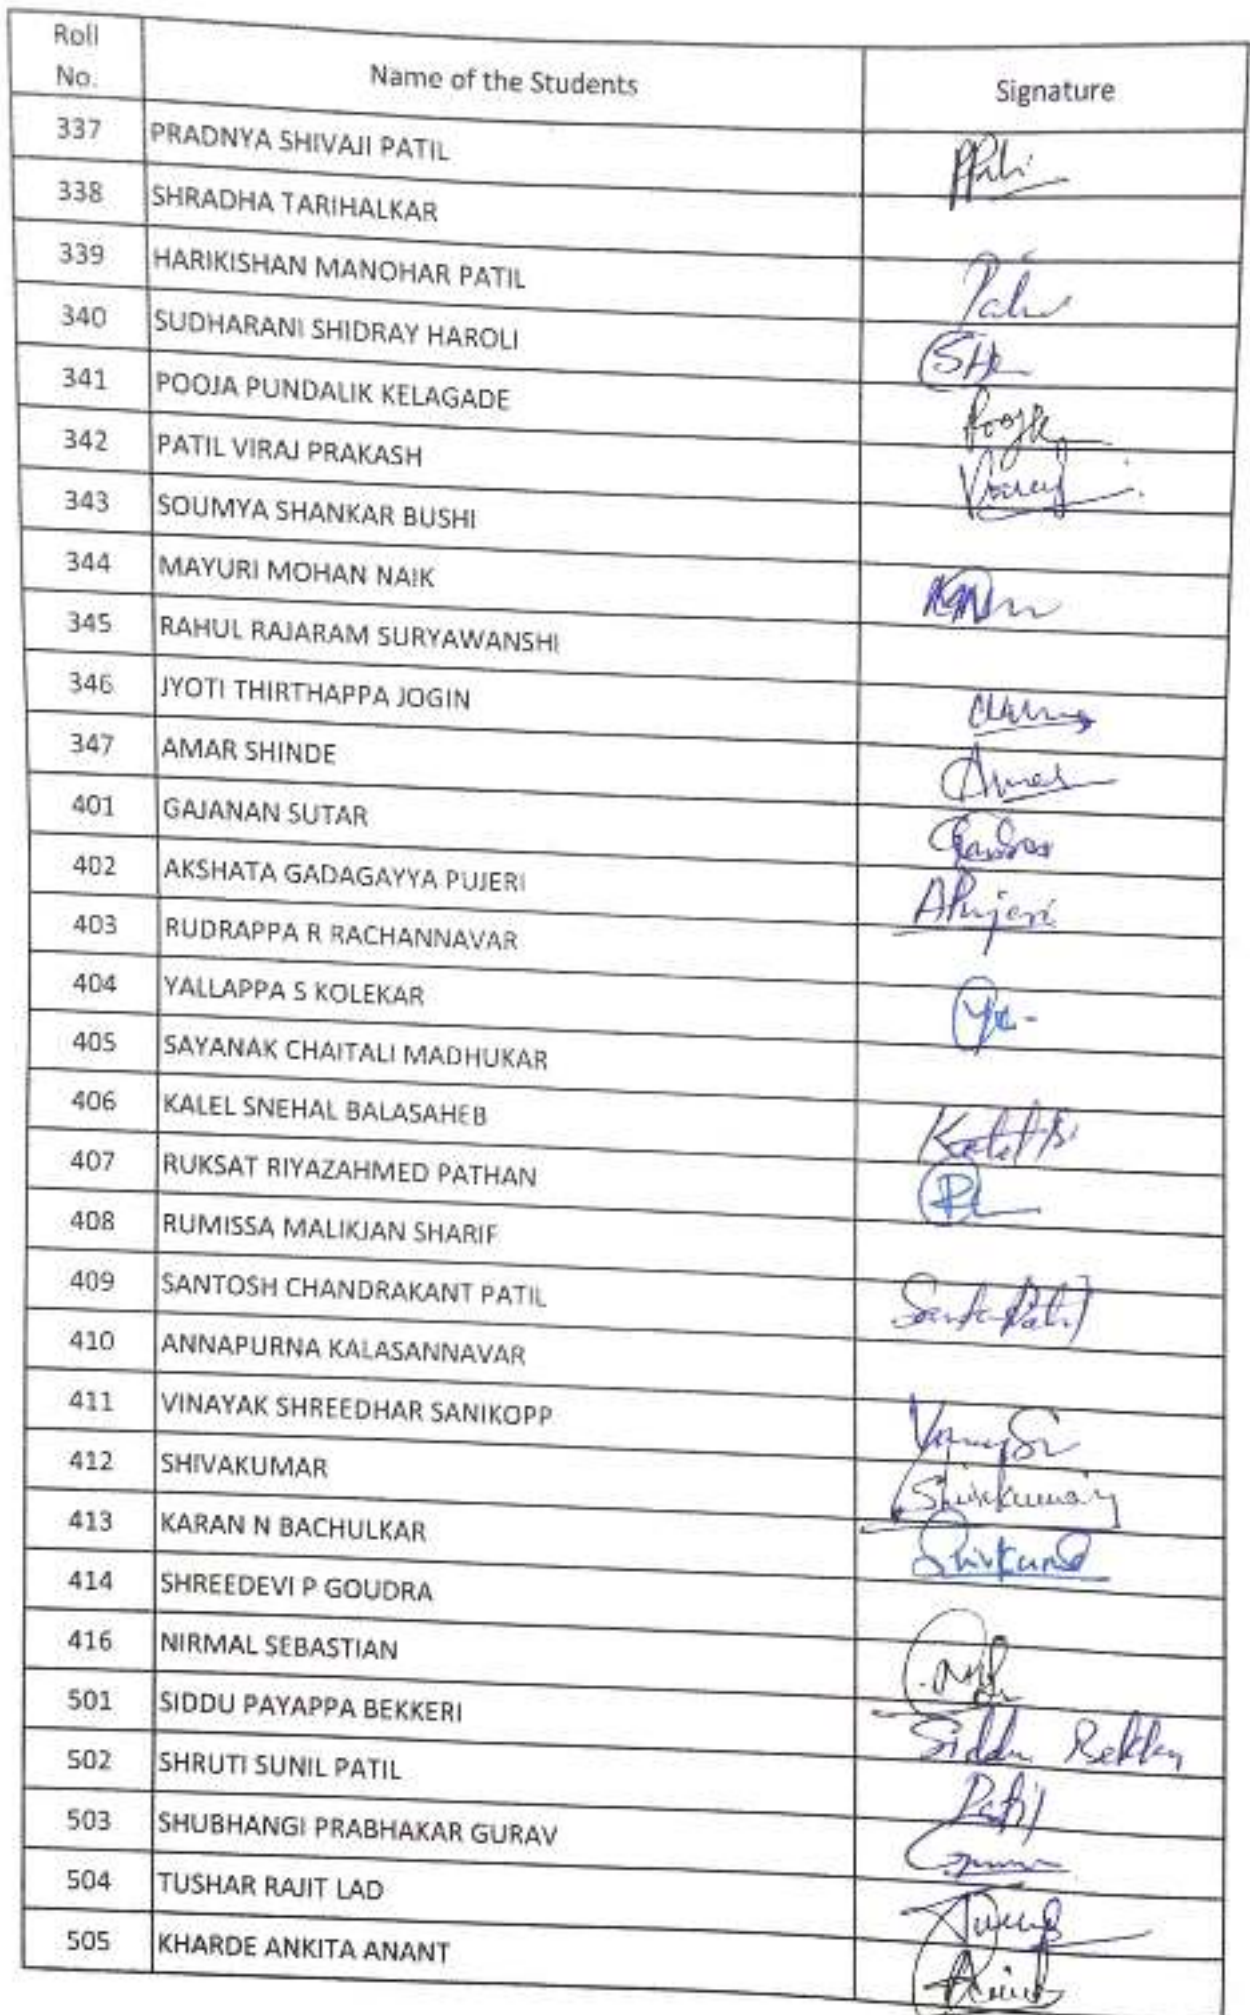 Roll No. Name of the Students Signature
337 PRADNYA SHIVAJI PATIL
338 SHRADHA TARIHALKAR
339 HARIKISHAN MANOHAR PATIL
340 SUDHARANI SHIDRAY HAROLI
341 POOJA PUNDALIK KELAGADE Pooja
342 PATIL VIRAJ PRAKASH
343 SOUMYA SHANKAR BUSHI
344 MAYURI MOHAN NAIK
345 RAHUL RAJARAM SURYAWANSHI
346 JYOTI THIRTHAPPA JOGIN
347 AMAR SHINDE
401 GAJANAN SUTAR
402 AKSHATA GADAGAYYA PUJERI APujeri
403 RUDRAPPA R RACHANNAVAR
404 YALLAPPA S KOLEKAR
405 SAYANAK CHAITALI MADHUKAR
406 KALEL SNEHAL BALASAHEB
407 RUKSAT RIYAZAHMED PATHAN
408 RUMISSA MALIKJAN SHARIF
409 SANTOSH CHANDRAKANT PATIL
410 ANNAPURNA KALASANNAVAR
411 VINAYAK SHREEDHAR SANIKOPP
412 SHIVAKUMAR
413 KARAN N BACHULKAR
414 SHREEDEVI P GOUDRA
416 NIRMAL SEBASTIAN
501 SIDDU PAYAPPA BEKKERI Siddu
502 SHRUTI SUNIL PATIL Patil
503 SHUBHANGI PRABHAKAR GURAV
504 TUSHAR RAJIT LAD
505 KHARDE ANKITA ANANT